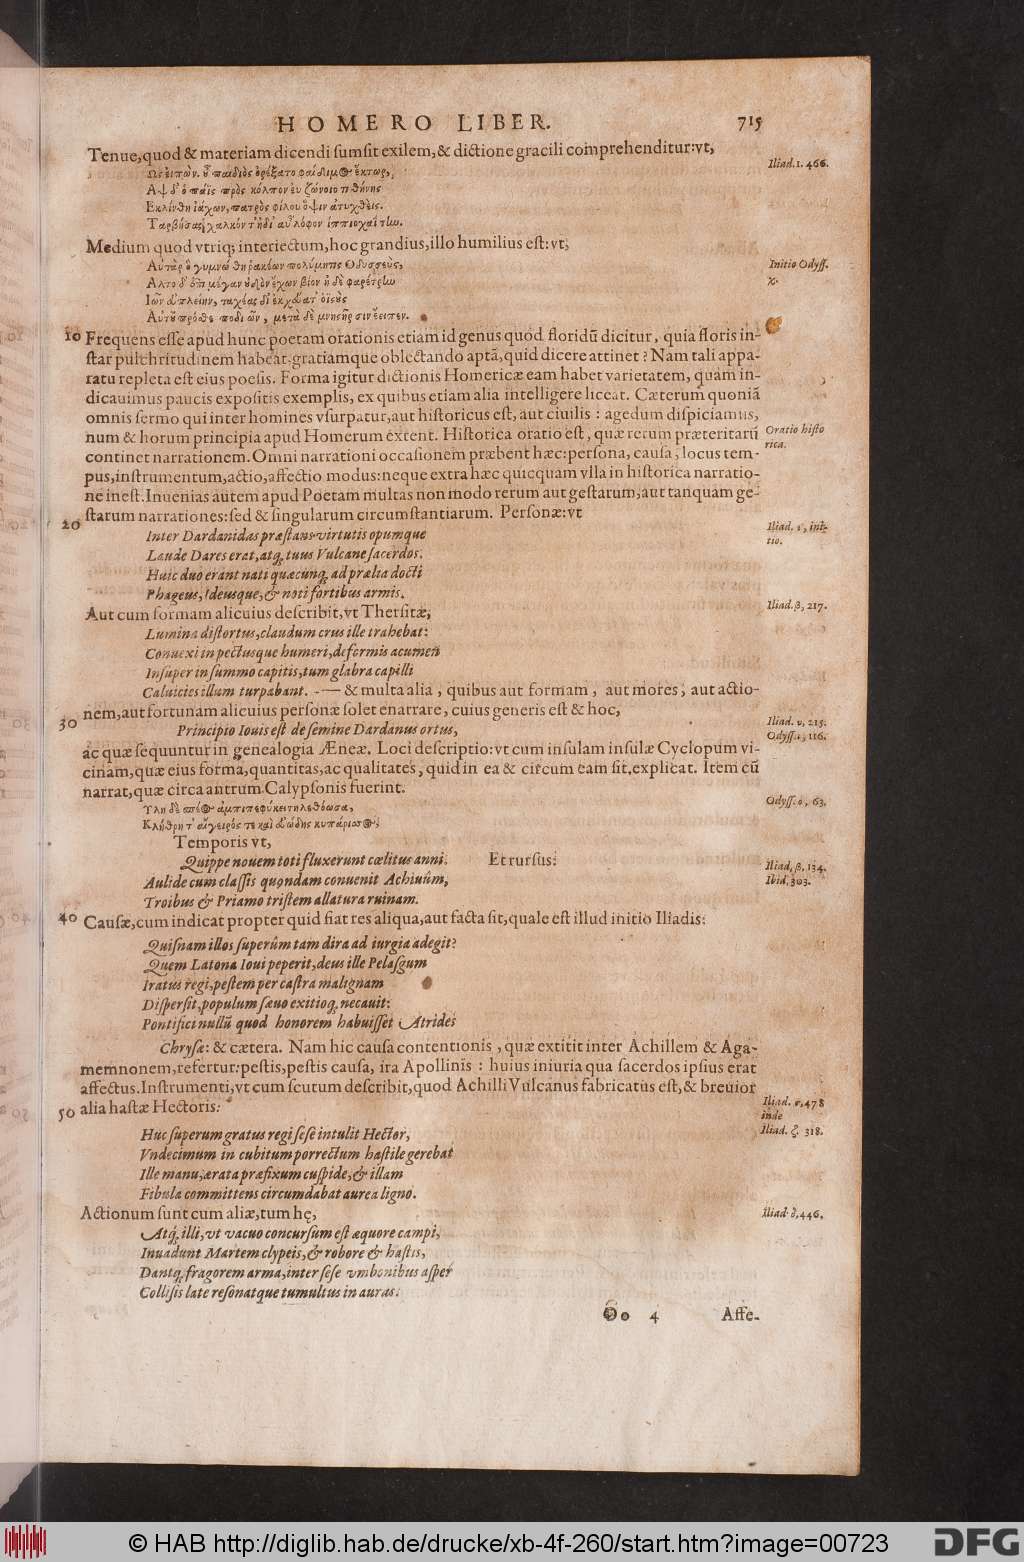 HOMERO LIBER. 715
Tenue, quod & materiam dicendi sumsit exilem, & dictione gracili comprehenditur: vt,
Iliad. 1. 466.
Ὣς εἰπὼν. οὗ παιδὸς ὀρέξατο φαίδιμος ἕκτωρ,
Αψ δ' ὁ πάϊς πρὸς κόλπον ἐυζώνοιο τιθήνης
Εκλίνθη ἰάχων, πατρὸς φίλου ὄψιν ἀτυχθεὶς.
Ταρβήσας χαλκόν τ' ἠδὲ λόφον ἱππιοχαίτην.
Medium quod vtriq; interiectum, hoc grandius, illo humilius est: vt,
Αὐτὰρ ὁ γυμνώθη ῥακέων πολύμητις Οδυσσεὺς,
Initio Odyss. χ.
Αλτο δ' ἐπὶ μέγαν οὐδὸν ἔχων βιὸν ἠδὲ φαρέτρην
Ιῶν ἐμπλείην, ταχέας δ' ἐκχεύατ' ὀϊστοὺς
Αὐτοῦ πρόσθε ποδῶν, μετὰ δὲ μνηστῆρσιν ἔειπεν.
10 Frequens esse apud hunc poetam orationis etiam id genus quod floridū dicitur, quia floris in-
star pulchritudinem habeat, gratiamque oblectando aptā, quid dicere attinet? Nam tali appa-
ratu repleta est eius poesis. Forma igitur dictionis Homericæ eam habet varietatem, quam in-
dicauimus paucis expositis exemplis, ex quibus etiam alia intelligere liceat. Cæterum quoniā
omnis sermo qui inter homines vsurpatur, aut historicus est, aut ciuilis: agedum dispiciamus,
num & horum principia apud Homerum extent. Historica oratio est, quæ rerum præteritarū
Oratio historica.
continet narrationem. Omni narrationi occasionem præbent hæc: persona, causa, locus tem-
pus, instrumentum, actio, affectio modus: neque extra hæc quicquam vlla in historica narratio-
ne inest. Inuenias autem apud Poetam multas non modo rerum aut gestarum, aut tanquam ge-
starum narrationes: sed & singularum circumstantiarum. Personæ: vt
20 Inter Dardanidas præstans virtutis opumque
Iliad. ε, initio.
Laude Dares erat, atq; tuus Vulcane sacerdos.
Huic duo erant nati quæcunq; ad prælia docti
Phageus, Ideusque, & noti fortibus armis.
Aut cum formam alicuius describit, vt Thersitæ,
Iliad. β, 217.
Lumina distortus, claudum crus ille trahebat:
Conuexi in pectusque humeri, deformis acumen
Insuper in summo capitis, tum glabra capilli
Caluicies illum turpabant. -— & multa alia, quibus aut formam, aut mores, aut actio-
nem, aut fortunam alicuius personæ solet enarrare, cuius generis est & hoc,
30 Principio Iouis est de semine Dardanus ortus,
Iliad. υ, 215.
ac quæ sequuntur in genealogia Æneæ. Loci descriptio: vt cum insulam insulæ Cyclopum vi-
Odyss. ι, 116.
cinam, quæ eius forma, quantitas, ac qualitates, quid in ea & circum eam sit, explicat. Item cū
narrat, quæ circa antrum Calypsonis fuerint.
Υλη δὲ σπέος ἀμπιπεφύκει τηλεθόωσα,
Odyss. ε, 63.
Κλήθρη τ' αἴγειρός τε καὶ εὐώδης κυπάρισσος,
Temporis vt,
Quippe nouem toti fluxerunt cœlitus anni. Et rursus:
Iliad, β, 134.
Aulide cum classis quondam conuenit Achiuûm,
Ibid. 303.
Troibus & Priamo tristem allatura ruinam.
40 Causæ, cum indicat propter quid fiat res aliqua, aut facta sit, quale est illud initio Iliadis:
Quisnam illos superûm tam dira ad iurgia adegit?
Quem Latona Ioui peperit, deus ille Pelasgum
Iratus regi, pestem per castra malignam
Dispersit, populum sæuo exitioq; necauit:
Pontifici nullū quod honorem habuisset Atrides
Chrysæ: & cætera. Nam hic causa contentionis, quæ extitit inter Achillem & Aga-
memnonem, refertur: pestis, pestis causa, ira Apollinis: huius iniuria qua sacerdos ipsius erat
affectus. Instrumenti, vt cum scutum describit, quod Achilli Vulcanus fabricatus est, & breuior
Iliad. σ, 478
50 alia hastæ Hectoris:
inde
Iliad. ζ. 318.
Huc superum gratus regi sese intulit Hector,
Vndecimum in cubitum porrectum hastile gerebat
Ille manu, ærata præfixum cuspide, & illam
Fibula committens circumdabat aurea ligno.
Actionum sunt cum aliæ, tum hę,
Iliad. δ, 446.
Atq; illi, vt vacuo concursum est æquore campi,
Inuadunt Martem clypeis, & robore & hastis,
Dantq; fragorem arma, inter sese vmbonibus asper
Collisis late resonatque tumultus in auras.
Oo 4 Affe-
© HAB http://diglib.hab.de/drucke/xb-4f-260/start.htm?image=00723
DFG